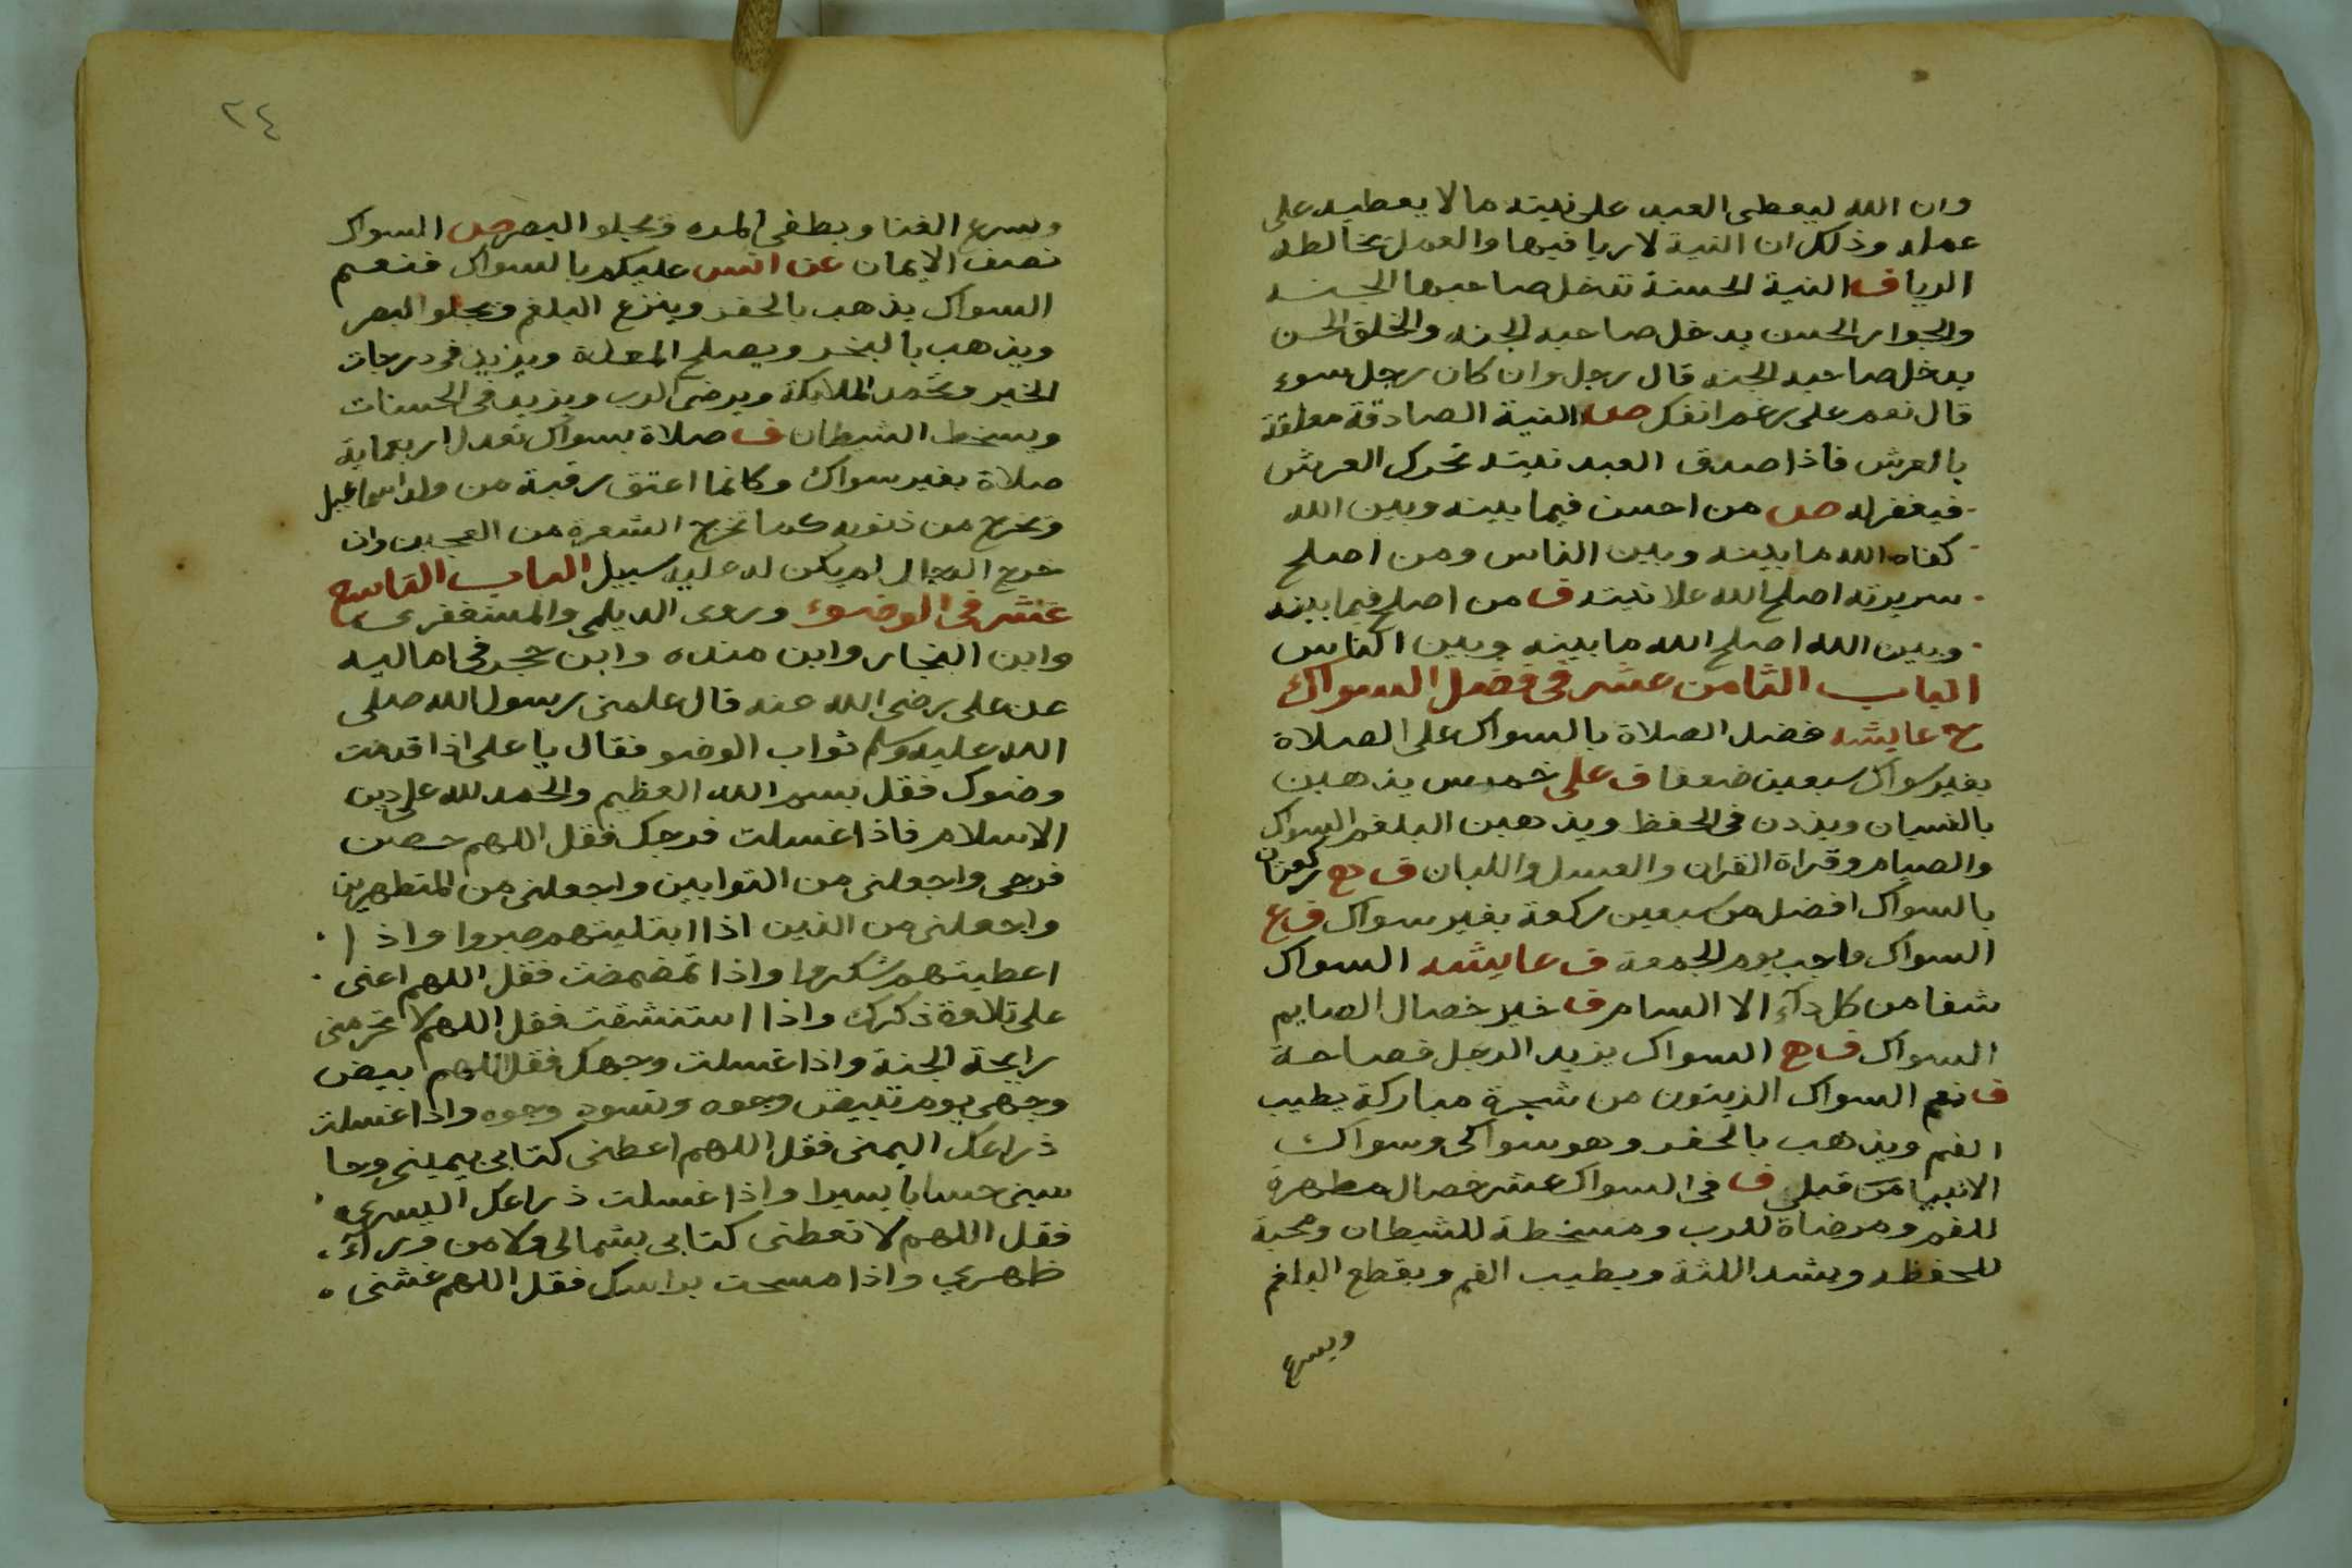 وان الله ليعطى العبد على نيته ما لا يعطيه على
عمله وذلك ان النية لا ريا فيها والعمل يخالطه
الريا ف النية الحسنة تدخل صاحبها الجنه
والجوار الحسن يدخل صاحبه الجنه والخلق الحسن
يدخل صاحبه الجنه قال رجل وان كان رجل سوء
قال نعم على رغم انفك ص النية الصادقة معلقة
بالعرش فاذا صدق العبد نيته تحرك العرش
فيغفر له ص من احسن فيما بينه وبين الله
كفاه الله ما بينه وبين الناس ومن اصلح
سريرته اصلح الله علانيته ف من اصلح فيما بينه
وبين الله اصلح الله ما بينه وبين الناس
الباب الثامن عشر فى فضل السواك
ح عايشه فضل الصلاة بالسواك على الصلاة
بغير سواك سبعين ضعفا ف على خمس يذهبن
بالنسيان ويزدن فى الحفظ ويذهبن البلغم السواك
والصيام وقراة القران والعسل واللبان ف ح ركعتان
بالسواك افضل من سبعين ركعة بغير سواك ف ع
السواك واجب يوم الجمعة ف عايشه السواك
شفا من كل دآء الا السام ف خير خصال الصايم
السواك ف ح السواك يزيد الرجل فصاحة
ف نعم السواك الزيتون من شجرة مباركة يطيب
الفم ويذهب بالحفر وهو سواكى وسواك
الانبيا من قبلي ف فى السواك عشر خصال مطهرة
للفم ومرضاة للرب ومسخطة للشيطان ومحبة
للحفظه ويشد اللثة ويطيب الفم ويقطع البلغم
ويسرع
٢٤
ويسرع الغنا ويطفى المره ويجلو البصر ص السواك
نصف الايمان عن انس عليكم بالسواك فنعم
السواك يذهب بالحفر وينزع البلغم ويجلو البصر
ويذهب بالبخر ويصلح المعدة ويزيد فى درجات
الخير وتحمد الملايكة ويرضى الرب ويزيد فى الحسنات
ويسخط الشيطان ف صلاة بسواك تعدل اربعماية
صلاة بغير سواك وكانما اعتق رقبة من ولد اسماعيل
وتخرج من ذنوبه كما تخرج الشعرة من العجين وان
خرج الدجال لم يكن له عليه سبيل الباب التاسع
عشر فى الوضوء وروى الديلمى والمستغفرى
وابن النجار وابن منده وابن حجر فى اماليه
عن على رضى الله عنه قال علمنى رسول الله صلى
الله عليه وسلم ثواب الوضو فقال يا على اذا قدمت
وضوك فقل بسم الله العظيم والحمد لله على دين
الاسلام فاذا غسلت فرجك فقل اللهم حصن
فرجى واجعلنى من التوابين واجعلنى من المتطهرين
واجعلنى من الذين اذا ابتليتهم صبروا واذا
اعطيتهم شكروا واذا تمضمضت فقل اللهم اعنى
على تلاوة ذكرك واذا استنشقت فقل اللهم لا تحرمنى
رايحة الجنة واذا غسلت وجهك فقل اللهم بيض
وجهى يوم تبيض وجوه وتسود وجوه واذا غسلت
ذراعك اليمنى فقل اللهم اعطنى كتابى بيمينى وحا
سبنى حسابا يسيرا واذا غسلت ذراعك اليسرى
فقل اللهم لا تعطنى كتابى بشمالى ولا من ورآء
ظهرى واذا مسحت براسك فقل اللهم غشنى